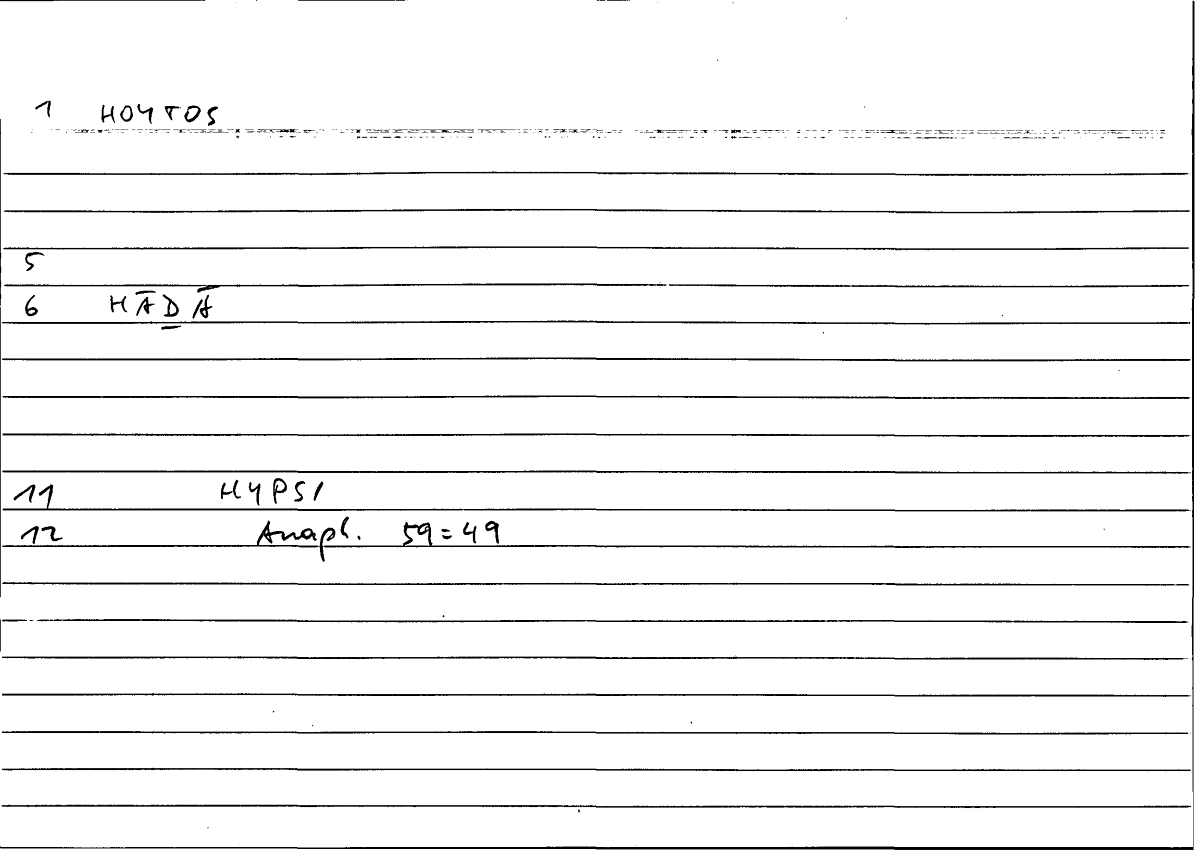 1 HOYTOS
5
6 HĀḎĀ
11 HYPSI
12 Anaph. 59=49